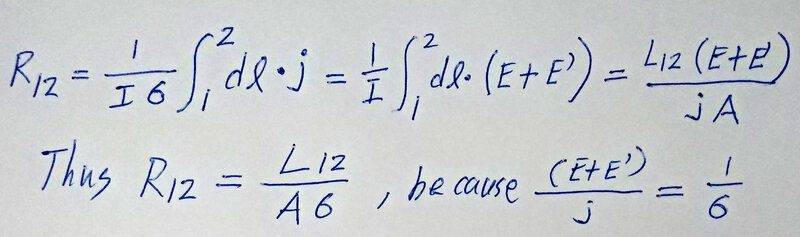 R₁₂ = 1/(I6) ∫₁² dl·j = 1/I ∫₁² dl·(E+E') = L₁₂(E+E')/(jA)
Thus R₁₂ = L₁₂/(A6), because (E+E')/j = 1/6